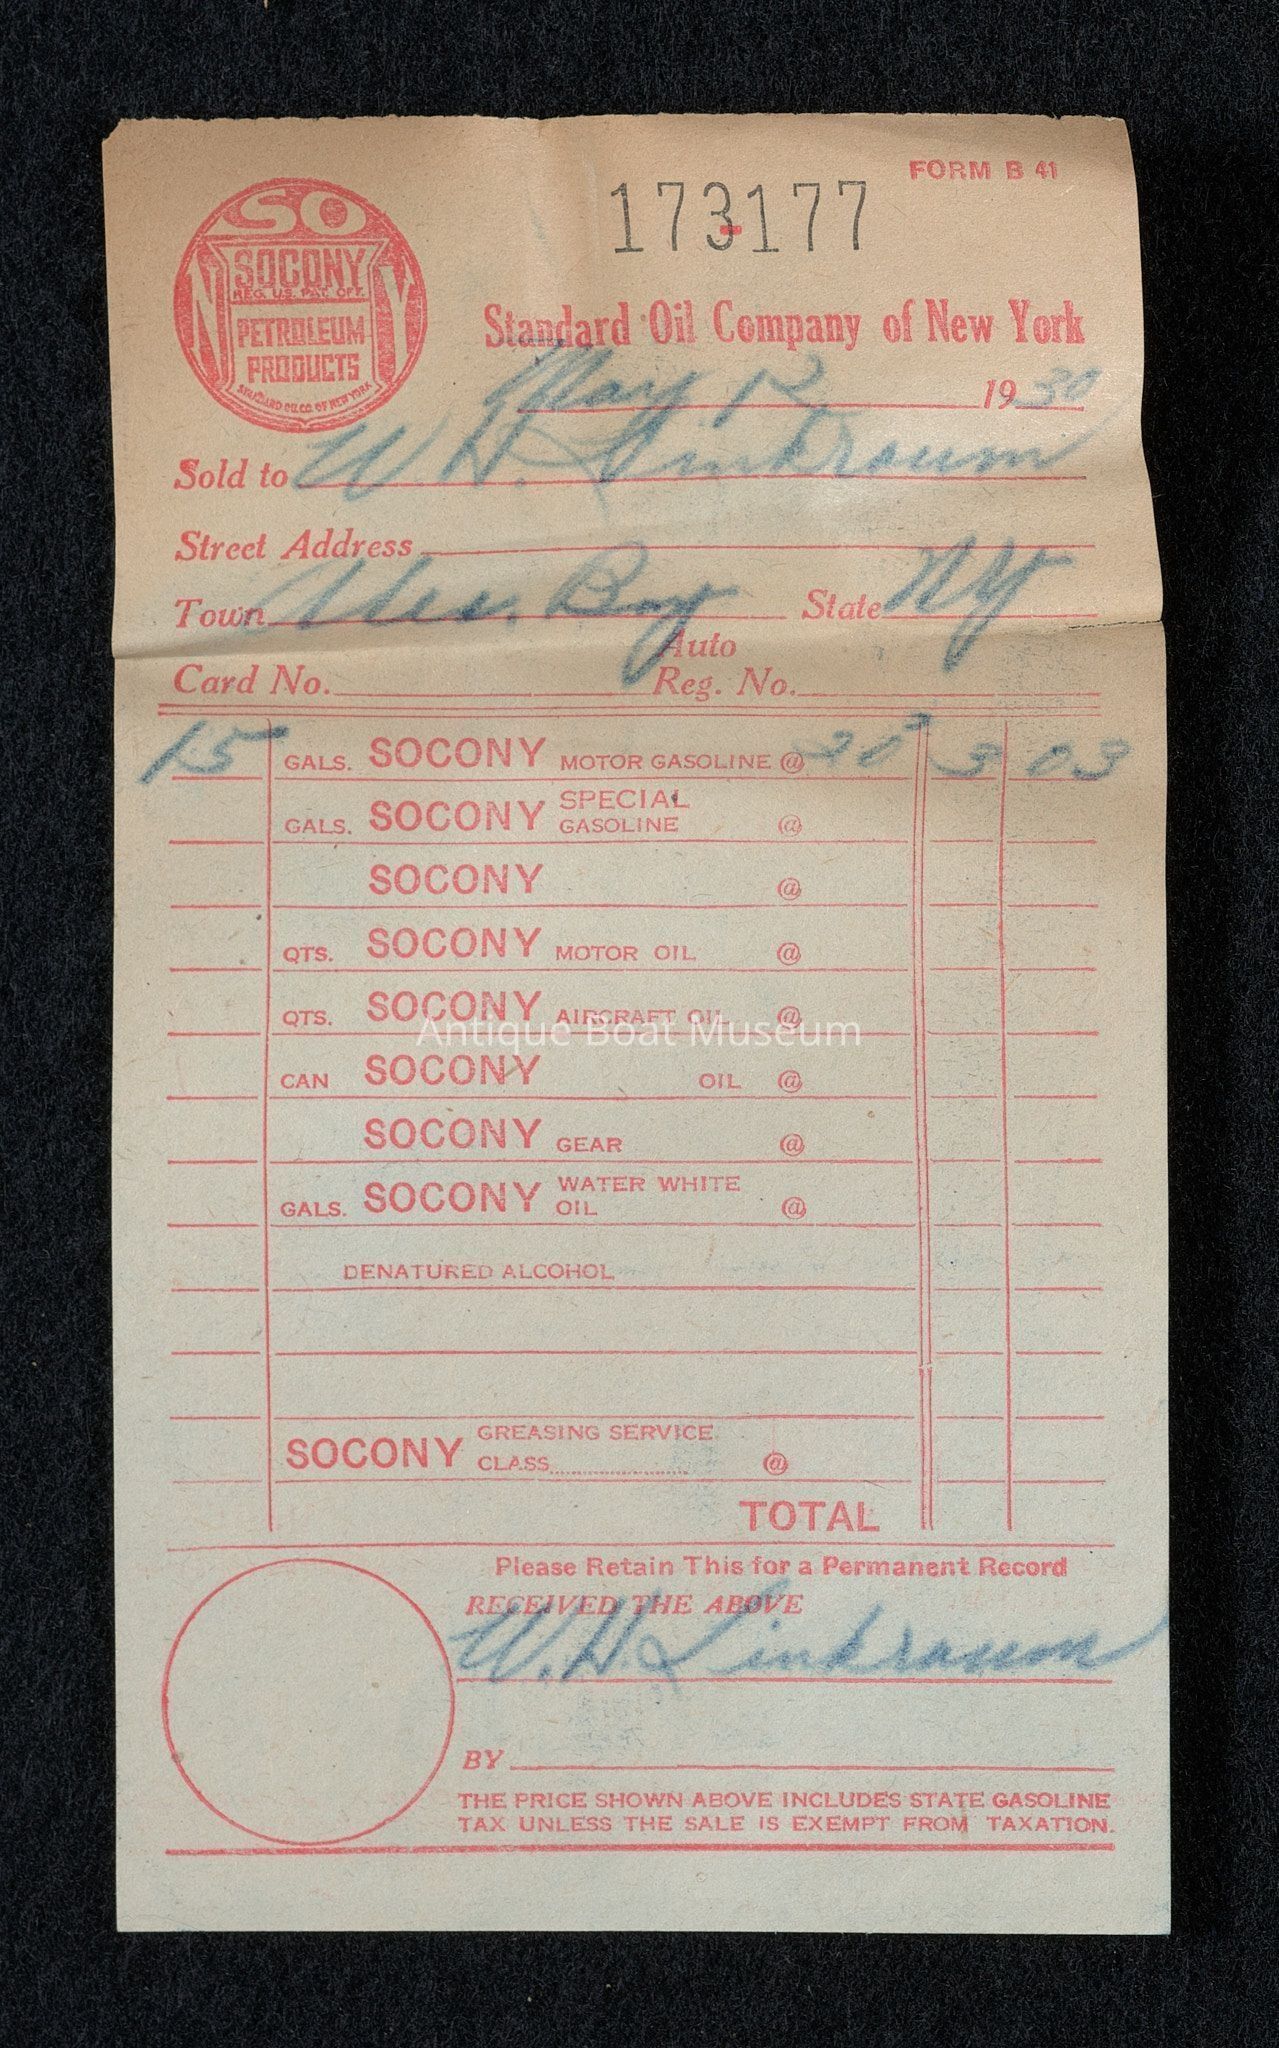 FORM B 41
173177
SO
N Y
SOCONY
REG. U.S. PAT. OFF.
PETROLEUM
PRODUCTS
STANDARD OIL CO. OF NEW YORK
Standard Oil Company of New York
May 12 1930
Sold to W. H.
Street Address
Town Alex. Bay State NY
Auto
Card No. Reg. No.
15 GALS. SOCONY MOTOR GASOLINE @ 20² 3 03
SPECIAL
GALS. SOCONY GASOLINE @
SOCONY @
QTS. SOCONY MOTOR OIL @
QTS. SOCONY AIRCRAFT OIL @
Antique Boat Museum
CAN SOCONY OIL @
SOCONY GEAR @
WATER WHITE
GALS. SOCONY OIL @
DENATURED ALCOHOL
GREASING SERVICE
SOCONY CLASS @
TOTAL
Please Retain This for a Permanent Record
RECEIVED THE ABOVE
W. H.
BY
THE PRICE SHOWN ABOVE INCLUDES STATE GASOLINE
TAX UNLESS THE SALE IS EXEMPT FROM TAXATION.